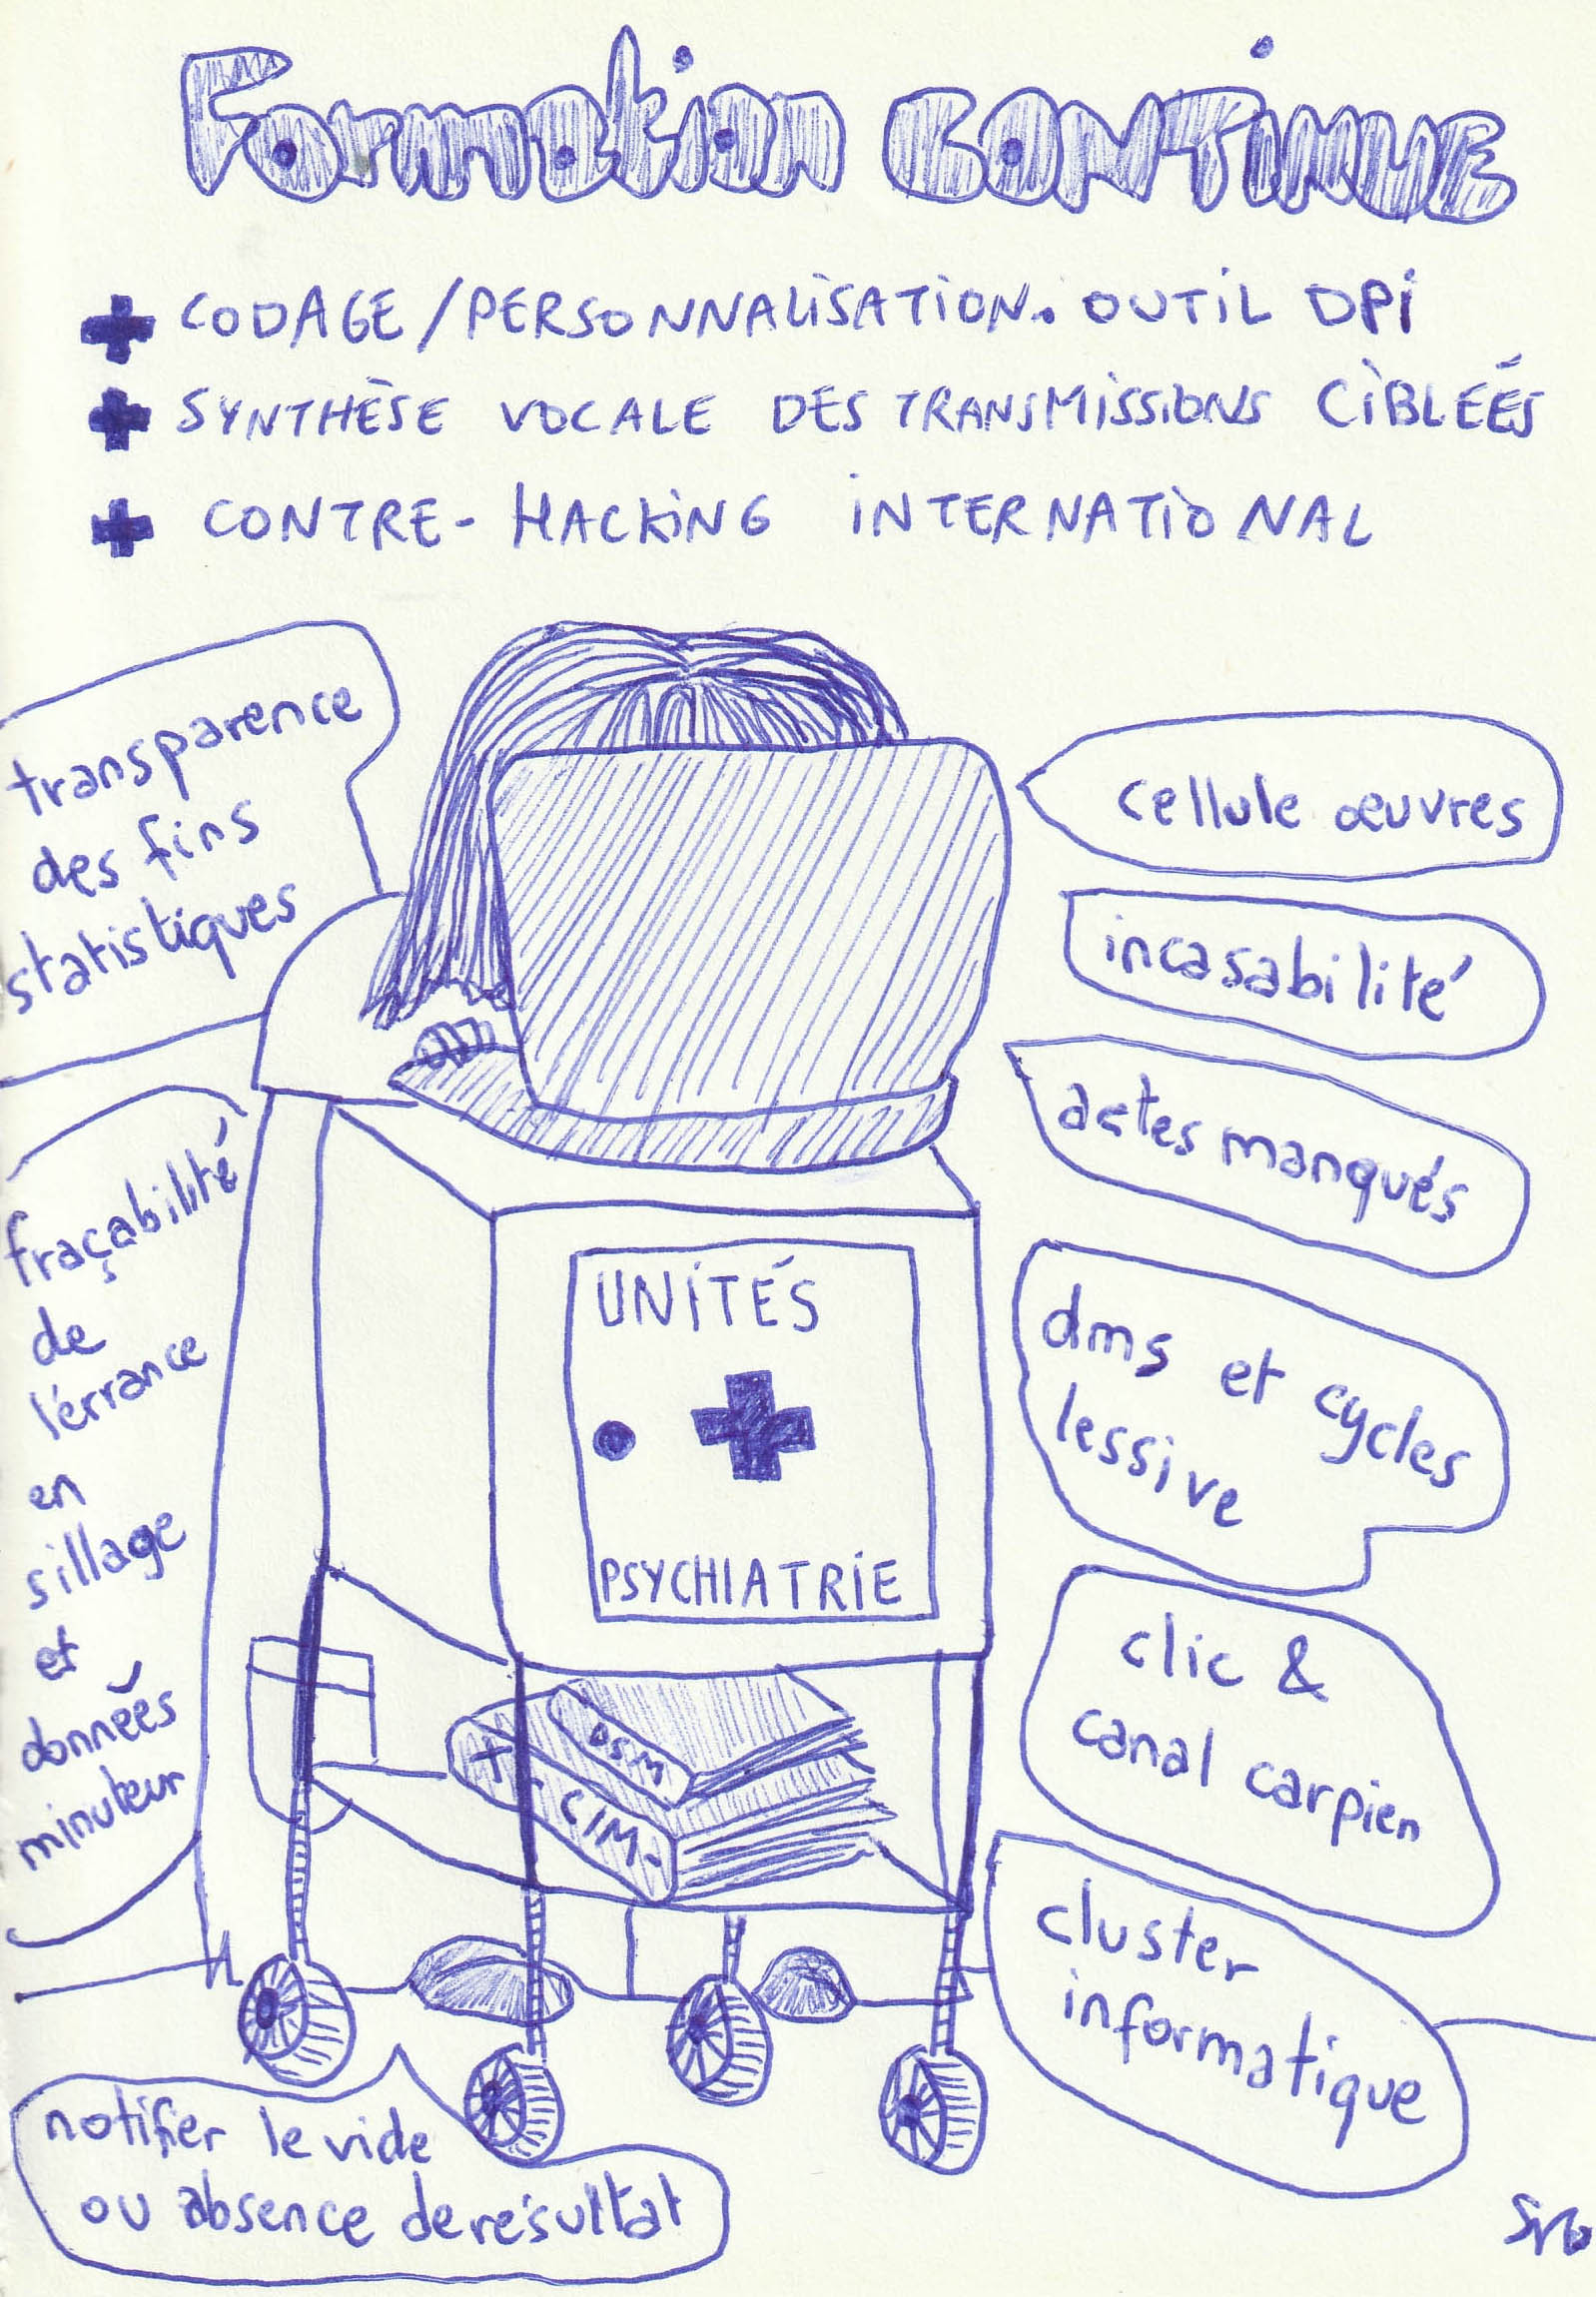 Formation CONTINUE
CODAGE/PERSONNALISATION. OUTIL DPI
SYNTHÈSE VOCALE DES TRANSMISSIONS CIBLÉÉS
CONTRE-HACKING INTERNATIONAL
transparence
des fins
statistiques
fraçabilité
de
l'érrance
en
sillage
et
données
minuteur
cellule œuvres
incasabilité
actes manqués
dms et cycles
lessive
clic &
canal carpien
cluster
informatique
UNITÉS
PSYCHIATRIE
DSM
CIM.
notifier le vide
ou absence de résultat